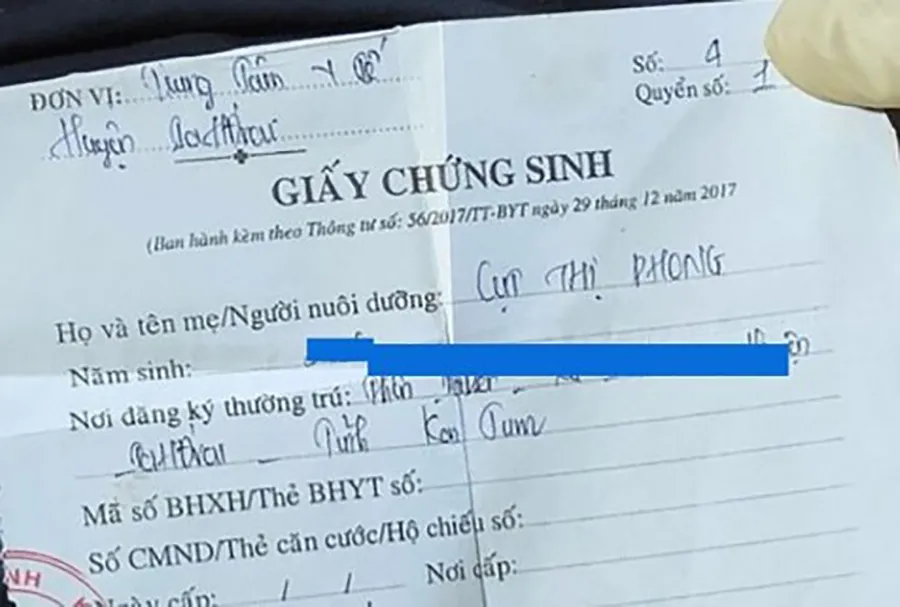 ĐƠN VỊ: Trung Tâm Y tế
Huyện IaH'Drai
Số: 9
Quyển số: 1
GIẤY CHỨNG SINH
(Ban hành kèm theo Thông tư số: 56/2017/TT-BYT ngày 29 tháng 12 năm 2017
Họ và tên mẹ/Người nuôi dưỡng: CỤT THỊ PHONG
Năm sinh:
Nơi đăng ký thường trú: Thôn
IaH'Drai - Tỉnh Kon Tum
Mã số BHXH/Thẻ BHYT số:
Số CMND/Thẻ căn cước/Hộ chiếu số:
Ngày cấp: / / Nơi cấp:
NH